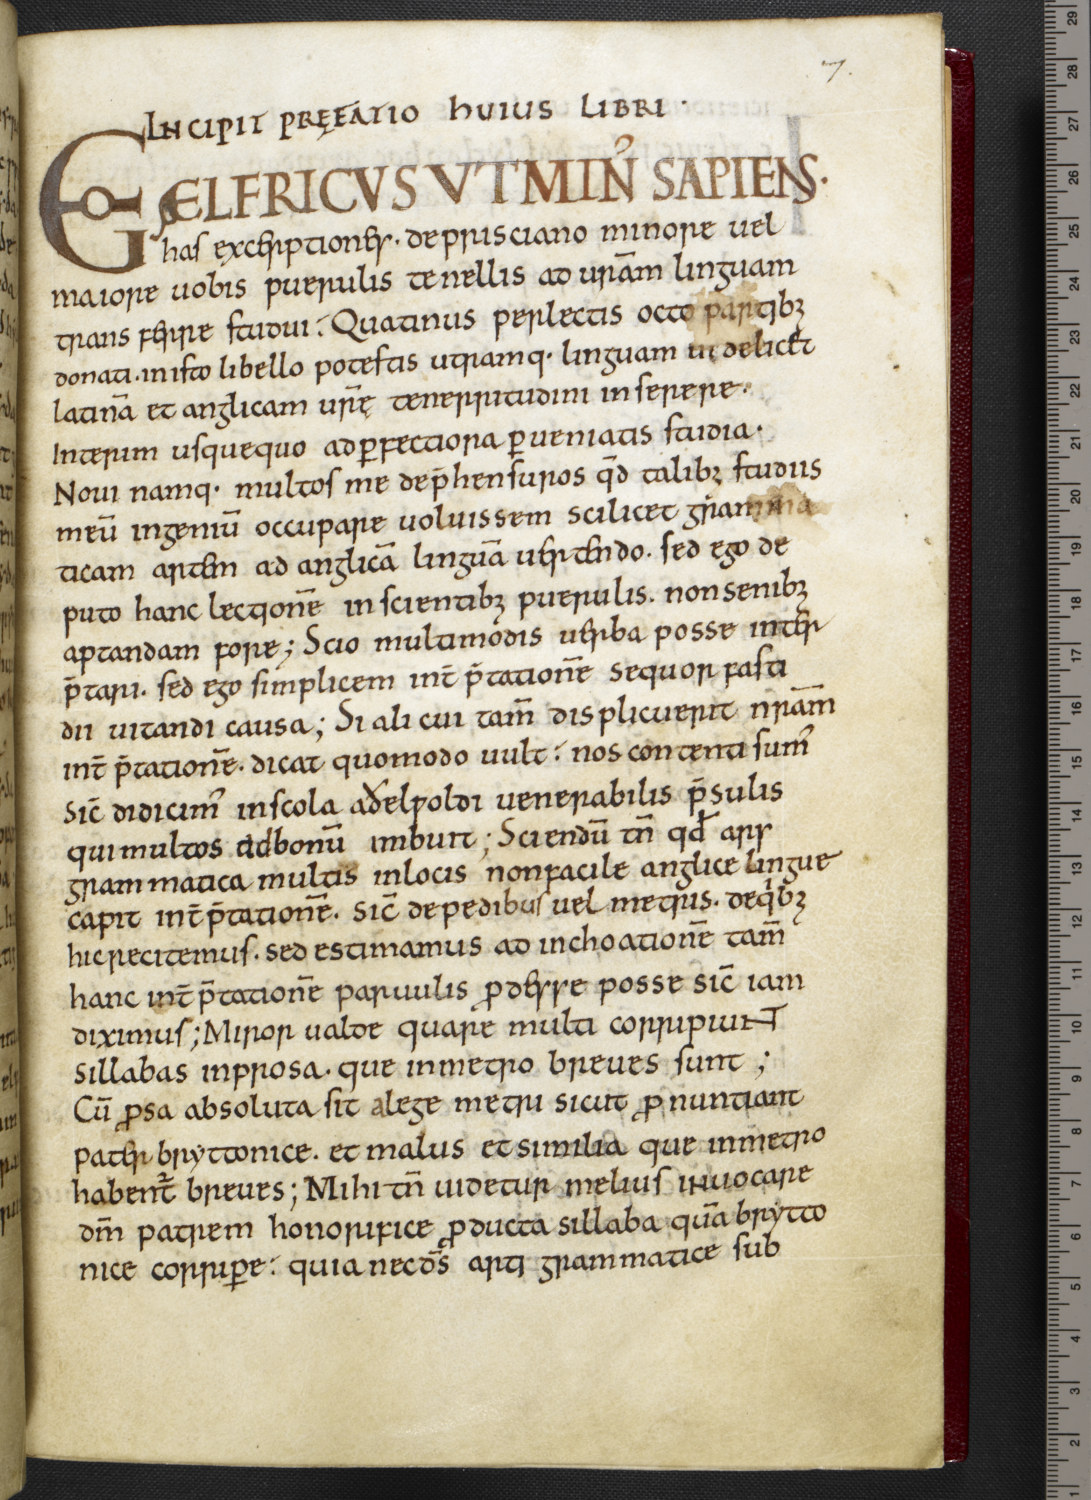 7.
INCIPIT PRĘFATIO HUIUS LIBRI ·
EGO ÆLFRICUS UT MIN̉ SAPIENS ·
has excerptiones · de prisciano minore uel
maiore uobis puerulis tenellis ad ur̄am linguam
transferre studui · Quatinus perlectis octo partibꝫ
donati · in isto libello potestis utramq· linguam uidelicet
latinā et anglicam ur̄ę teneritudini inserere ·
Interim usquequo ad ꝑfectiora ꝑueniatis studia ·
Noui namq· multos me dep̄hensuros qđ talibꝫ studiis
meū ingeniū occupare uoluissem scilicet gramma
ticam artem ad anglicā linguā uertendo · sed ego de
puto hanc lectionē inscientibꝫ puerulis · non senibꝫ
aptandam fore ; Scio multimodis uerba posse inter
p̄tari · sed ego simplicem int̄p̄tationē sequor fasti
dii uitandi causa ; Si alicui tam̄ displicuerit nr̄am
int̄p̄tationē · dicat quomodo uult : nos contenti sum̉
sic̄ didicim̉ in scola aðelƿoldi uenerabilis p̄sulis
qui multos ad bonū imbuit ; Sciendū tn̄ qđ ars
grammatica multis in locis non facile anglice lingue
capit int̄p̄tationē · sic̄ de pedibus uel metris · de qͥbꝫ
hic recitemus · sed estimamus ad inchoationē tam̄
hanc int̄p̄tationē paruulis ꝓdesse posse sic̄ iam
diximus ; Miror ualde quare multi corripiunt
sillabas in prosa · que in metro breues sunt ;
Cū ꝓsa absoluta sit a lege metri sicut ꝓnuntiant
pater bryttonice · et malus et similia que in metro
habent̄ breues ; Mihi tn̄ uidetur melius inuocare
dm̄ patrem honorifice ꝓducta sillaba quā brytto
nice corriꝑe : quia nec ds̄ arti grammatice sub